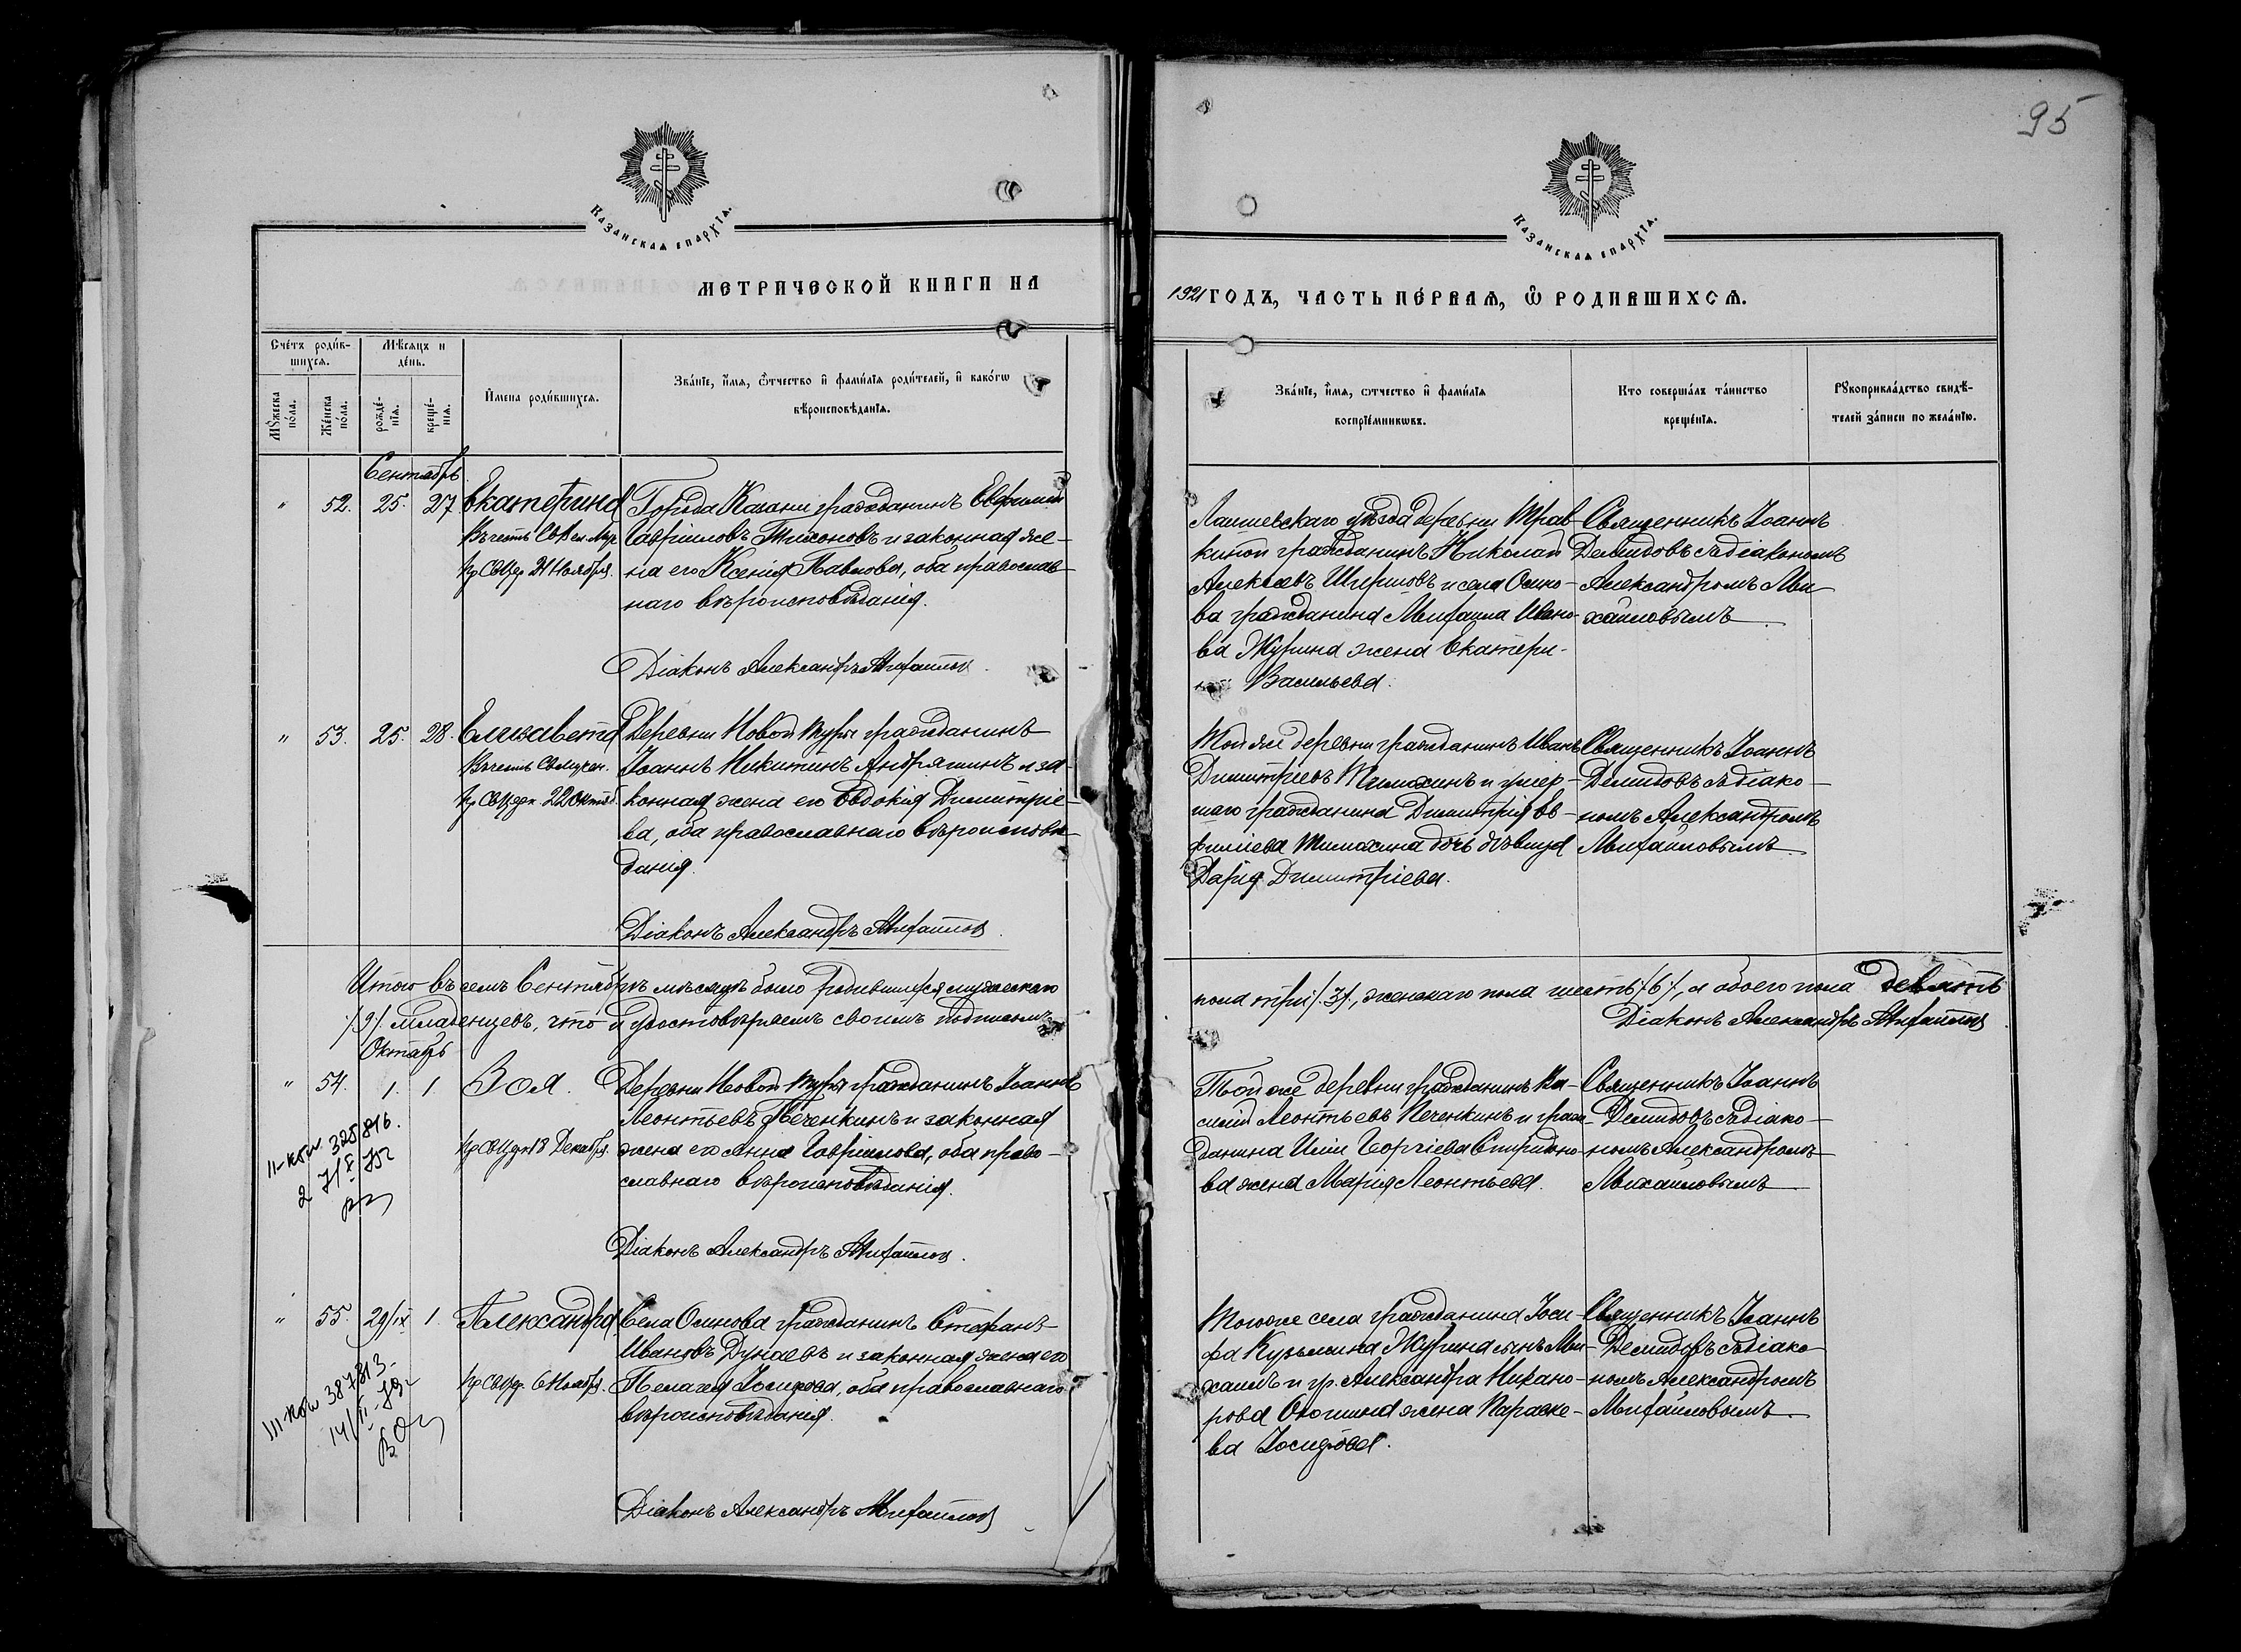 95
Казанскаѧ епархїѧ.
Казанскаѧ епархїѧ.
МЕТРИЧЕСКОЙ КНИГИ НА
1921 ГОДЪ, ЧАСТЬ ПЕ́РВАѦ, Ѿ РОДИВШИХСѦ.
Сче́тъ роди́в-
шихсѧ.
Мѣ́сѧцъ и
де́нь.
Мꙋ́жеска
по́ла.
Же́нска
по́ла.
рожде́-
нїѧ.
креще́-
нїѧ.
И҆мена роди́вшихсѧ.
Зва́нїе, и҆́мѧ, ѻ҆́тчество и҆ фами́лїѧ роди́телей, и҆ како́гѡ
вѣроисповѣ́данїѧ.
Зва́нїе, и҆́мѧ, ѻтчество и҆ фами́лїѧ
воспрїе́мникѡвъ.
Кто соверша́лъ та́инство
креще́нїѧ.
Рꙋкоприкла́дство свидѣ́-
телей за́писи по жела́нїю.
Сентябрь
" 52. 25. 27. Екатерина
Въ честь Св Вел. Муч.
пр. Св Цер 24 Ноября.
Города Казани гражданинъ Евфимій
Гавріиловъ Тихоновъ и законная же-
на его Ксенія Павлова, оба православ-
наго вѣроисповѣданія.
Діаконъ Александръ Михайловъ.
Лаишевскаго уѣзда деревни Трав-
киной гражданинъ Николай
Алексѣевъ Ширшовъ и села Осино-
ва гражданина Михаила Ивано-
ва Журина жена Екатери-
на Васильева.
Священникъ Іоаннъ
Демидовъ съ діакономъ
Александромъ Ми-
хайловымъ.
" 53. 25. 28. Елизавета
Въ честь Св Мучен.
пр. Св Церк. 22 Октяб.
Деревни Новой Туры гражданинъ
Іоаннъ Никитинъ Андряшинъ и за-
конная жена его Евдокія Димитріе-
ва, оба православнаго вѣроисповѣ-
данія.
Діаконъ Александръ Михайловъ.
Той же деревни гражданинъ Иванъ
Димитріевъ Тимохинъ и умер-
шаго гражданина Димитрія Ев-
фиміева Тимохина дочь дѣвица
Дарія Димитріева.
Священникъ Іоаннъ
Демидовъ съ діако-
номъ Александромъ
Михайловымъ.
Итого въ семъ Сентябрѣ мѣсяцѣ было родившихся мужескаго
пола три /3/, женскаго пола шесть /6/, а обоего пола девять
/9/ младенцевъ, что и удостовѣряемъ своимъ подписомъ
Діаконъ Александръ Михайловъ
Октябрь
" 54. 1. 1. Зоя.
пр. Св Церк 18 Декабря.
Деревни Новой Туры гражданинъ Іоаннъ
Леонтьевъ Печенкинъ и законная
жена его Анна Гавріилова, оба право-
славнаго вѣроисповѣданія.
Діаконъ Александръ Михайловъ.
Той же деревни гражданинъ Ва-
силій Леонтьевъ Печенкинъ и граж-
данина Иліи Георгіева Спиридоно-
ва жена Марія Леонтьева.
Священникъ Іоаннъ
Демидовъ съ діако-
номъ Александромъ
Михайловымъ
325816.
" 55. 29/IX 1. Александра
пр. Св Цер. 6 Ноября.
Села Осинова гражданинъ Стефанъ
Ивановъ Дунаевъ и законная жена его
Пелагея Іосифова, оба православнаго
вѣроисповѣданія.
Діаконъ Александръ Михайловъ
Того же села гражданина Іоси-
фа Кузьмина Журина сынъ Ми-
хаилъ и гр. Александра Никано-
рова жена Параске-
ва Іосифова.
Священникъ Іоаннъ
Демидовъ съ діако-
номъ Александромъ
Михайловымъ.
387813.